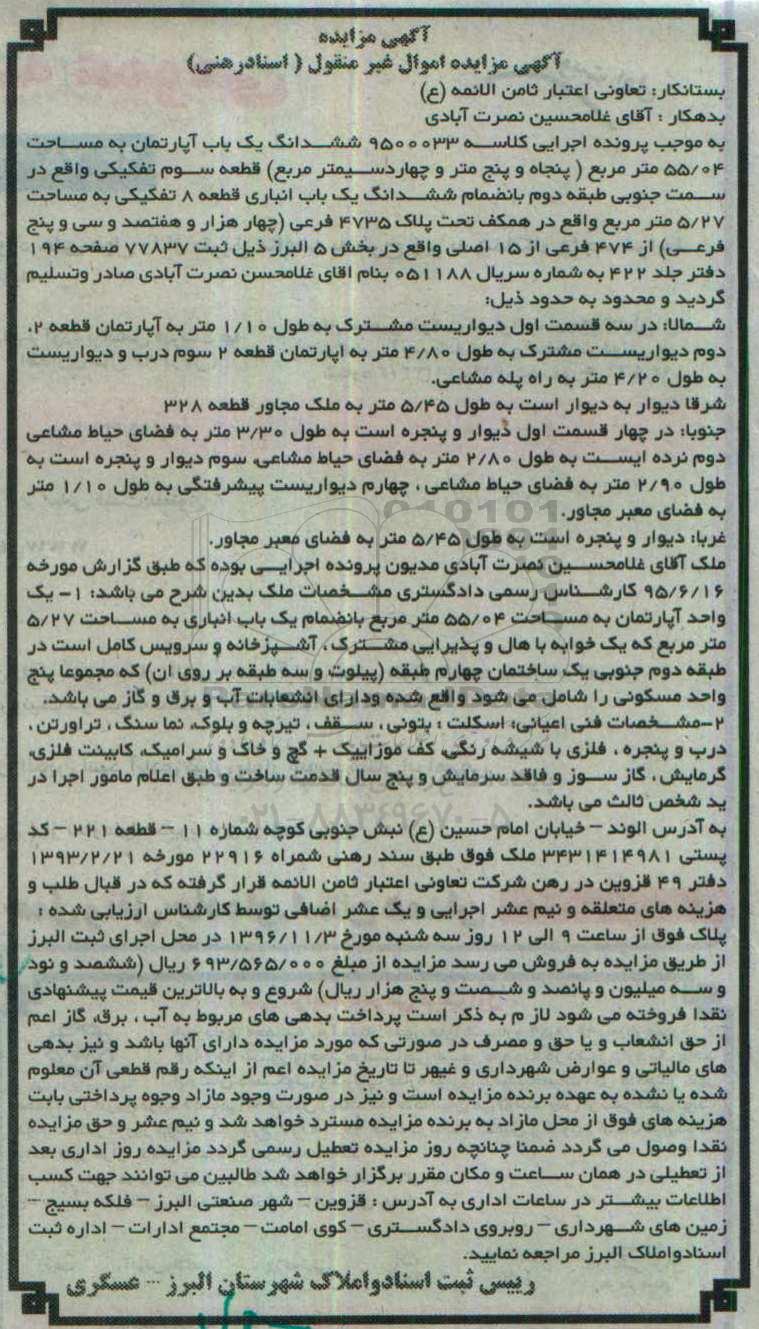 آگهی مزایده
آگهی مزایده اموال غیر منقول ( اسنادرهنی)
بستانکار: تعاونی اعتبار ثامن الائمه (ع)
بدهکار : آقای غلامحسین نصرت آبادی
به موجب پرونده اجرایی کلاسه ۹۵۰۰۰۳۳ ششدانگ یک باب آپارتمان به مساحت
۵۵/۰۴ متر مربع ( پنجاه و پنج متر و چهاردسیمتر مربع) قطعه سوم تفکیکی واقع در
سمت جنوبی طبقه دوم بانضمام ششدانگ یک باب انباری قطعه ۸ تفکیکی به مساحت
۵/۲۷ متر مربع واقع در همکف تحت پلاک ۴۷۳۵ فرعی (چهار هزار و هفتصد و سی و پنج
فرعی) از ۴۷۴ فرعی از ۱۵ اصلی واقع در بخش ۵ البرز ذیل ثبت ۷۷۸۳۷ صفحه ۱۹۴
دفتر جلد ۴۲۲ به شماره سریال ۰۵۱۱۸۸ بنام اقای غلامحسن نصرت آبادی صادر وتسلیم
گردید و محدود به حدود ذیل:
شمالا: در سه قسمت اول دیواریست مشترک به طول ۱/۱۰ متر به آپارتمان قطعه ۲،
دوم دیواریست مشترک به طول ۴/۸۰ متر به اپارتمان قطعه ۲ سوم درب و دیواریست
به طول ۴/۲۰ متر به راه پله مشاعی.
شرقا دیوار به دیوار است به طول ۵/۴۵ متر به ملک مجاور قطعه ۳۲۸
جنوبا: در چهار قسمت اول دیوار و پنجره است به طول ۳/۳۰ متر به فضای حیاط مشاعی
دوم نرده ایست به طول ۲/۸۰ متر به فضای حیاط مشاعی، سوم دیوار و پنجره است به
طول ۲/۹۰ متر به فضای حیاط مشاعی ، چهارم دیواریست پیشرفتگی به طول ۱/۱۰ متر
به فضای معبر مجاور.
غربا: دیوار و پنجره است به طول ۵/۴۵ متر به فضای معبر مجاور.
ملک آقای غلامحسین نصرت آبادی مدیون پرونده اجرایی بوده که طبق گزارش مورخه
۹۵/۶/۱۶ کارشناس رسمی دادگستری مشخصات ملک بدین شرح می باشد: ۱- یک
واحد آپارتمان به مساحت ۵۵/۰۴ متر مربع بانضمام یک باب انباری به مساحت ۵/۲۷
متر مربع که یک خوابه با هال و پذیرایی مشترک ، آشپزخانه و سرویس کامل است در
طبقه دوم جنوبی یک ساختمان چهارم طبقه (پیلوت و سه طبقه بر روی ان) که مجموعا پنج
واحد مسکونی را شامل می شود واقع شده ودارای انشعابات آب و برق و گاز می باشد.
۲-مشخصات فنی اعیانی: اسکلت : بتونی ، سقف ، تیرچه و بلوک، نما سنگ ، تراورتن ،
درب و پنجره ، فلزی با شیشه رنگی، کف موزاییک + گچ و خاک و سرامیک، کابینت فلزی،
گرمایش ، گاز سوز و فاقد سرمایش و پنج سال قدمت ساخت و طبق اعلام مامور اجرا در
ید شخص ثالث می باشد.
به آدرس الوند – خیابان امام حسین (ع) نبش جنوبی کوچه شماره ۱۱ – قطعه ۲۲۱ – کد
پستی ۳۴۳۱۴۱۴۹۸۱ ملک فوق طبق سند رهنی شمراه ۲۲۹۱۶ مورخه ۱۳۹۳/۲/۲۱
دفتر ۴۹ قزوین در رهن شرکت تعاونی اعتبار ثامن الائمه قرار گرفته که در قبال طلب و
هزینه های متعلقه و نیم عشر اجرایی و یک عشر اضافی توسط کارشناس ارزیابی شده :
پلاک فوق از ساعت ۹ الی ۱۲ روز سه شنبه مورخ ۱۳۹۶/۱۱/۳ در محل اجرای ثبت البرز
از طریق مزایده به فروش می رسد مزایده از مبلغ ۶۹۳/۵۶۵/۰۰۰ ریال (ششصد و نود
و سه میلیون و پانصد و شصت و پنج هزار ریال) شروع و به بالاترین قیمت پیشنهادی
نقدا فروخته می شود لاز م به ذکر است پرداخت بدهی های مربوط به آب ، برق، گاز اعم
از حق انشعاب و یا حق و مصرف در صورتی که مورد مزایده دارای آنها باشد و نیز بدهی
های مالیاتی و عوارض شهرداری و غیهر تا تاریخ مزایده اعم از اینکه رقم قطعی آن معلوم
شده یا نشده به عهده برنده مزایده است و نیز در صورت وجود مازاد وجوه پرداختی بابت
هزینه های فوق از محل مازاد به برنده مزایده مسترد خواهد شد و نیم عشر و حق مزایده
نقدا وصول می گردد ضمنا چنانچه روز مزایده تعطیل رسمی گردد مزایده روز اداری بعد
از تعطیلی در همان ساعت و مکان مقرر برگزار خواهد شد طالبین می توانند جهت کسب
اطلاعات بیشتر در ساعات اداری به آدرس : قزوین – شهر صنعتی البرز – فلکه بسیج –
زمین های شهرداری – روبروی دادگستری – کوی امامت – مجتمع ادارات – اداره ثبت
اسنادواملاک البرز مراجعه نمایید.
رییس ثبت اسنادواملاک شهرستان البرز – عسکری